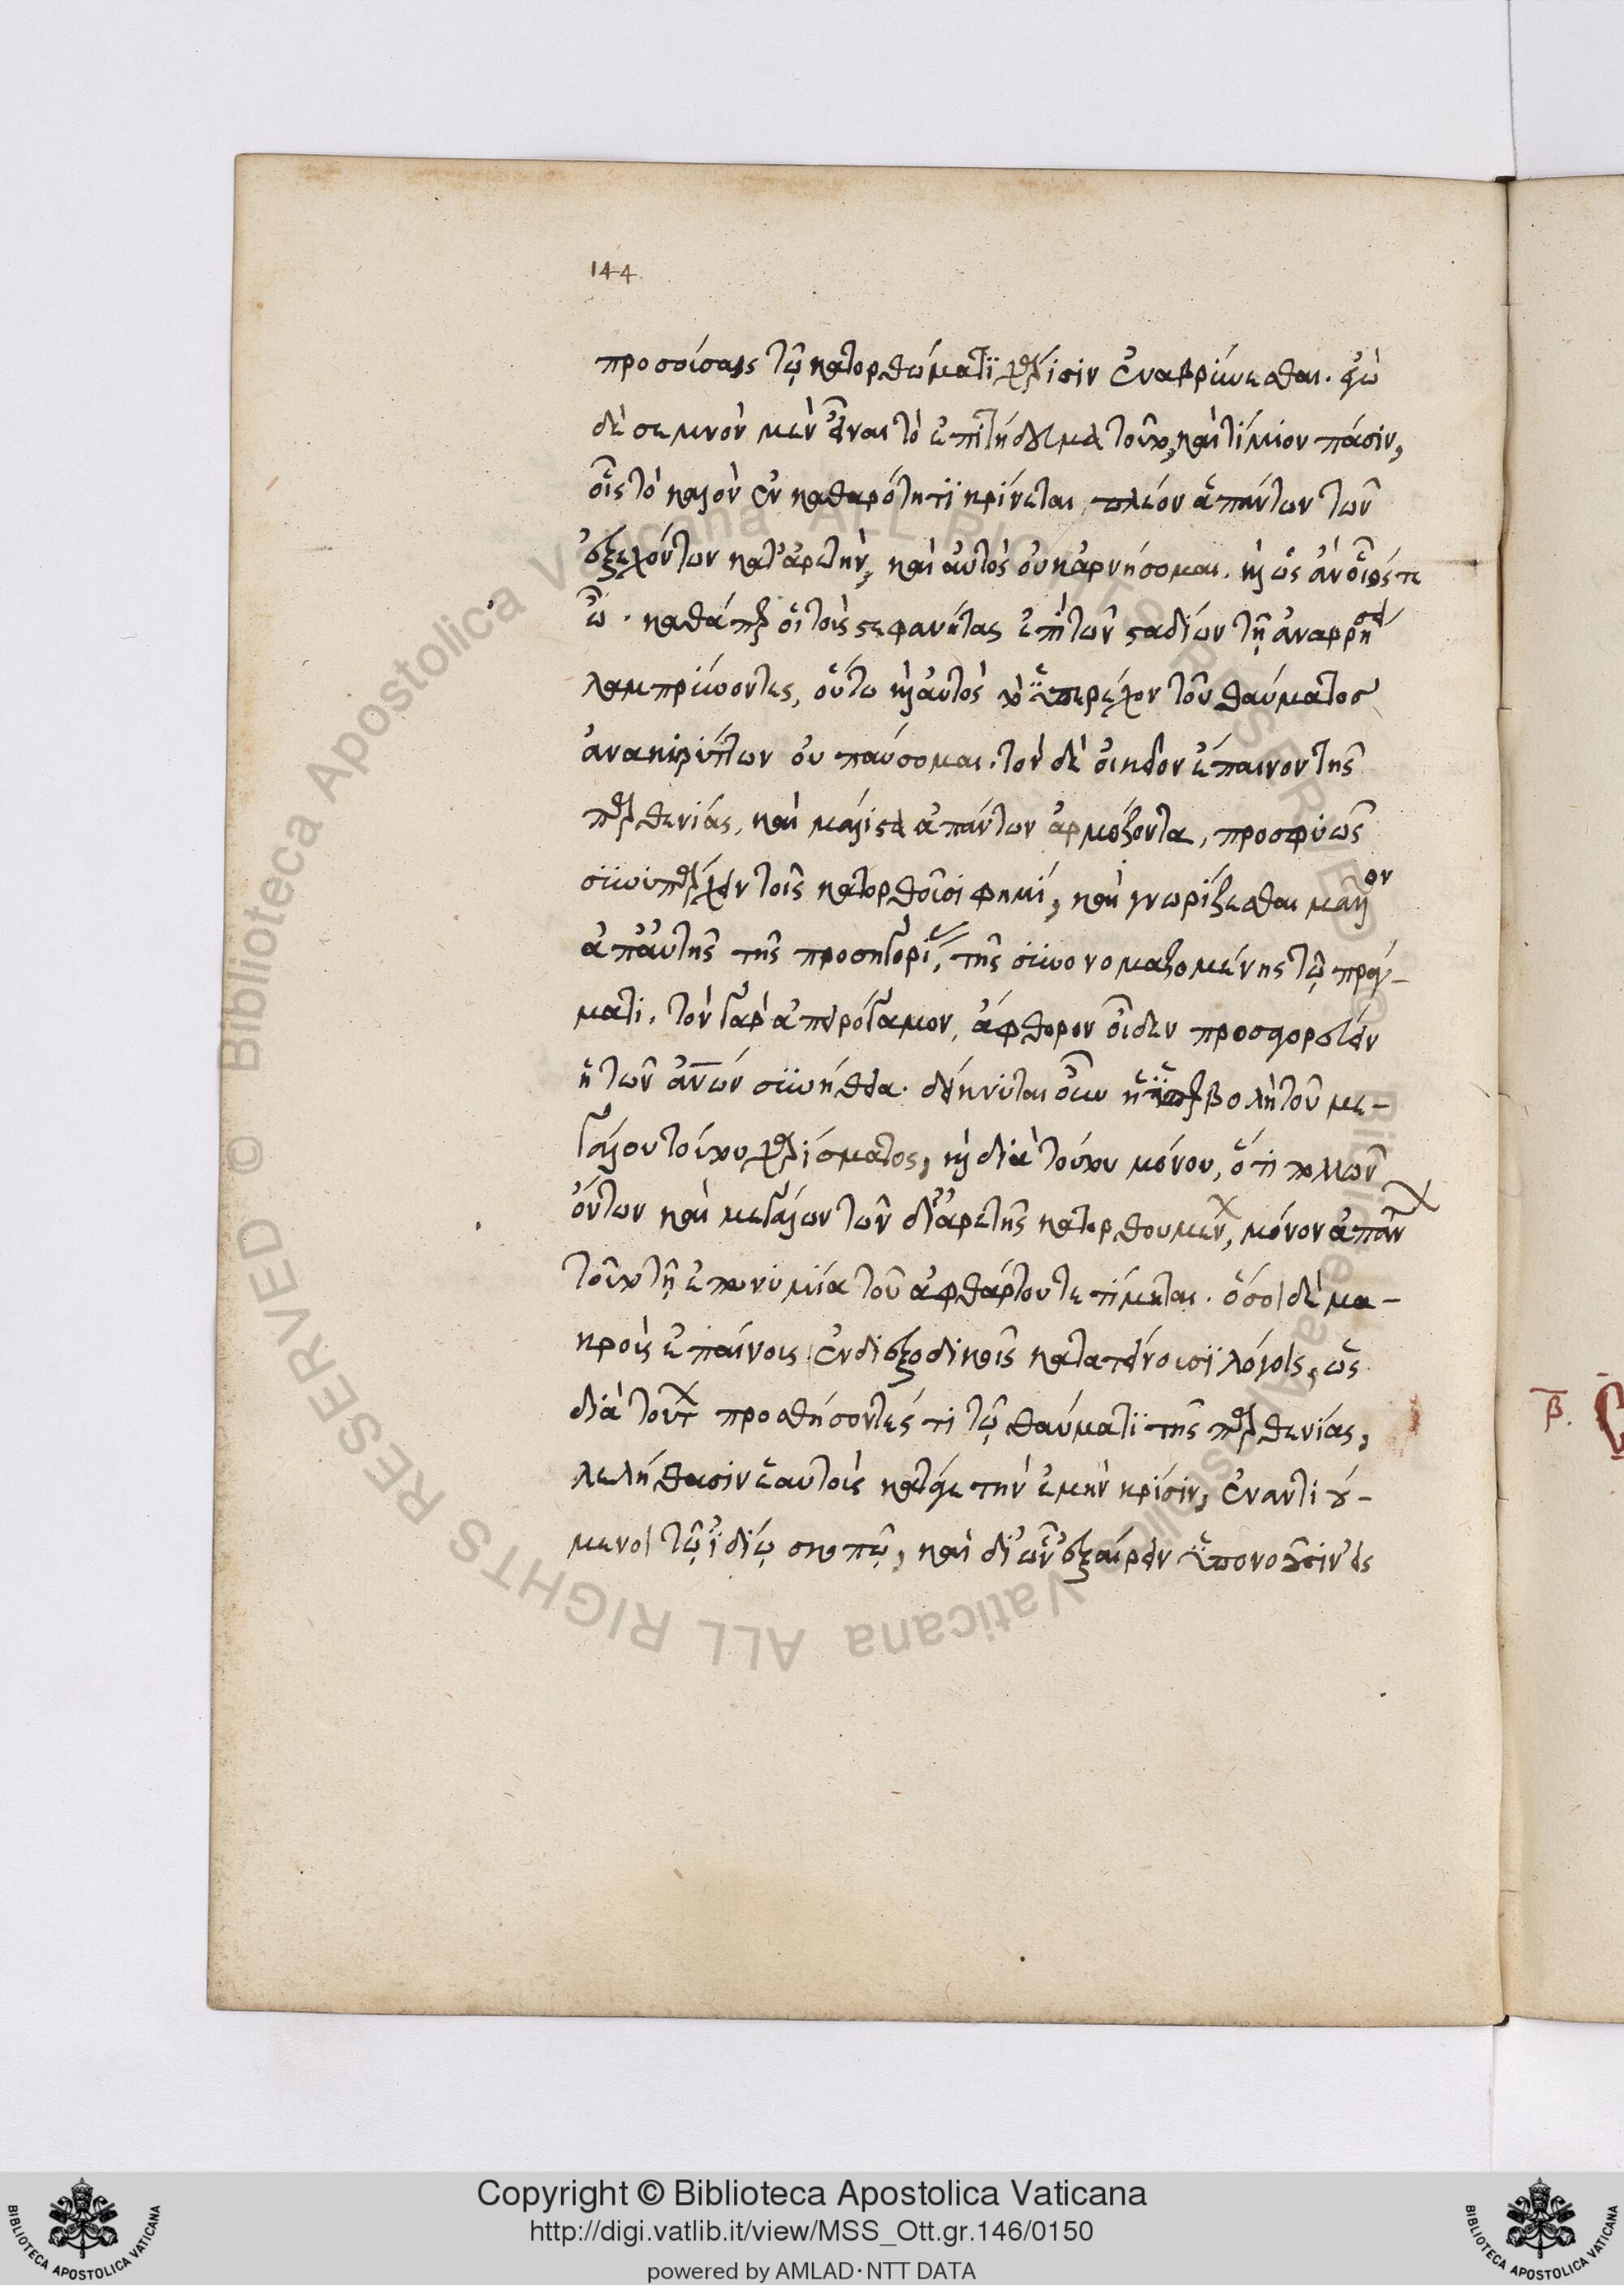 144
προσοίσας τῷ κατορθώματι χάρισιν ἐναβρύνεσθαι. ἐγὼ
δὲ σεμνὸν μὲν εἶναι τὸ ἐπιτήδευμα τοῦτο, καὶ τίμιον πᾶσιν,
οἷς τὸ καλὸν ἐν καθαρότητι κρίνεται, πλέον ἁπάντων τῶν
ἐξεχόντων κατ' ἀρετὴν, καὶ αὐτὸς οὐκ ἀρνήσομαι. καὶ ὡς ἂν οἷός τε
ὦ. καθάπερ οἱ τοὺς στεφανίτας ἐπὶ τῶν σταδίων τῇ ἀναρρήσει
λαμπρύνοντες, οὕτω καὶ αὐτὸς τὸ ὑπερέχον τοῦ θαύματος
ἀνακηρύττων οὐ παύσομαι. τὸν δὲ οἰκεῖον ἔπαινον τῆς
παρθενίας, καὶ μάλιστα ἁπάντων ἁρμόζοντα, προσφυῶς
συνυπάρχειν τοῖς κατορθοῦσι φημί, καὶ γνωρίζεσθαι μᾶλλον
ἀπ' αὐτῆς τῆς προσηγορίας, τῆς συνονομαζομένης τῷ πράγ-
ματι. τὸν γὰρ ἀπειρόγαμον, ἄφθορον οἶδεν προσαγορεύειν
ἡ τῶν ἀνῶν συνήθεια. δείκνυται οὖν ἡ ὑπερβολὴ τοῦ με-
γάλου τούτου χαρίσματος, καὶ διὰ τούτου μόνου, ὅτι πολλῶν
ὄντων καὶ μεγάλων τῶν δι' ἀρετῆς κατορθουμένων, μόνον ἁπάντων
τοῦτο τῇ ἐπωνυμία τοῦ ἀφθάρτου τετίμηται. ὅσοι δὲ μα-
κροὺς ἐπαίνους ἐν διεξοδικοῖς κατατείνουσι λόγοις, ὡς
διὰ τούτων προσθήσοντές τι τῷ θαύματι τῆς παρθενίας,
λελήθασιν ἑαυτοὺς κατά γε τὴν ἐμὴν κρίσιν, ἐναντιού-
μενοι τῷ ἰδίῳ σκοπῷ, καὶ δι' ὧν ἐξαίρειν ὑπονοοῦσιν εἰς
β.
Copyright © Biblioteca Apostolica Vaticana
http://digi.vatlib.it/view/MSS_Ott.gr.146/0150
powered by AMLAD·NTT DATA